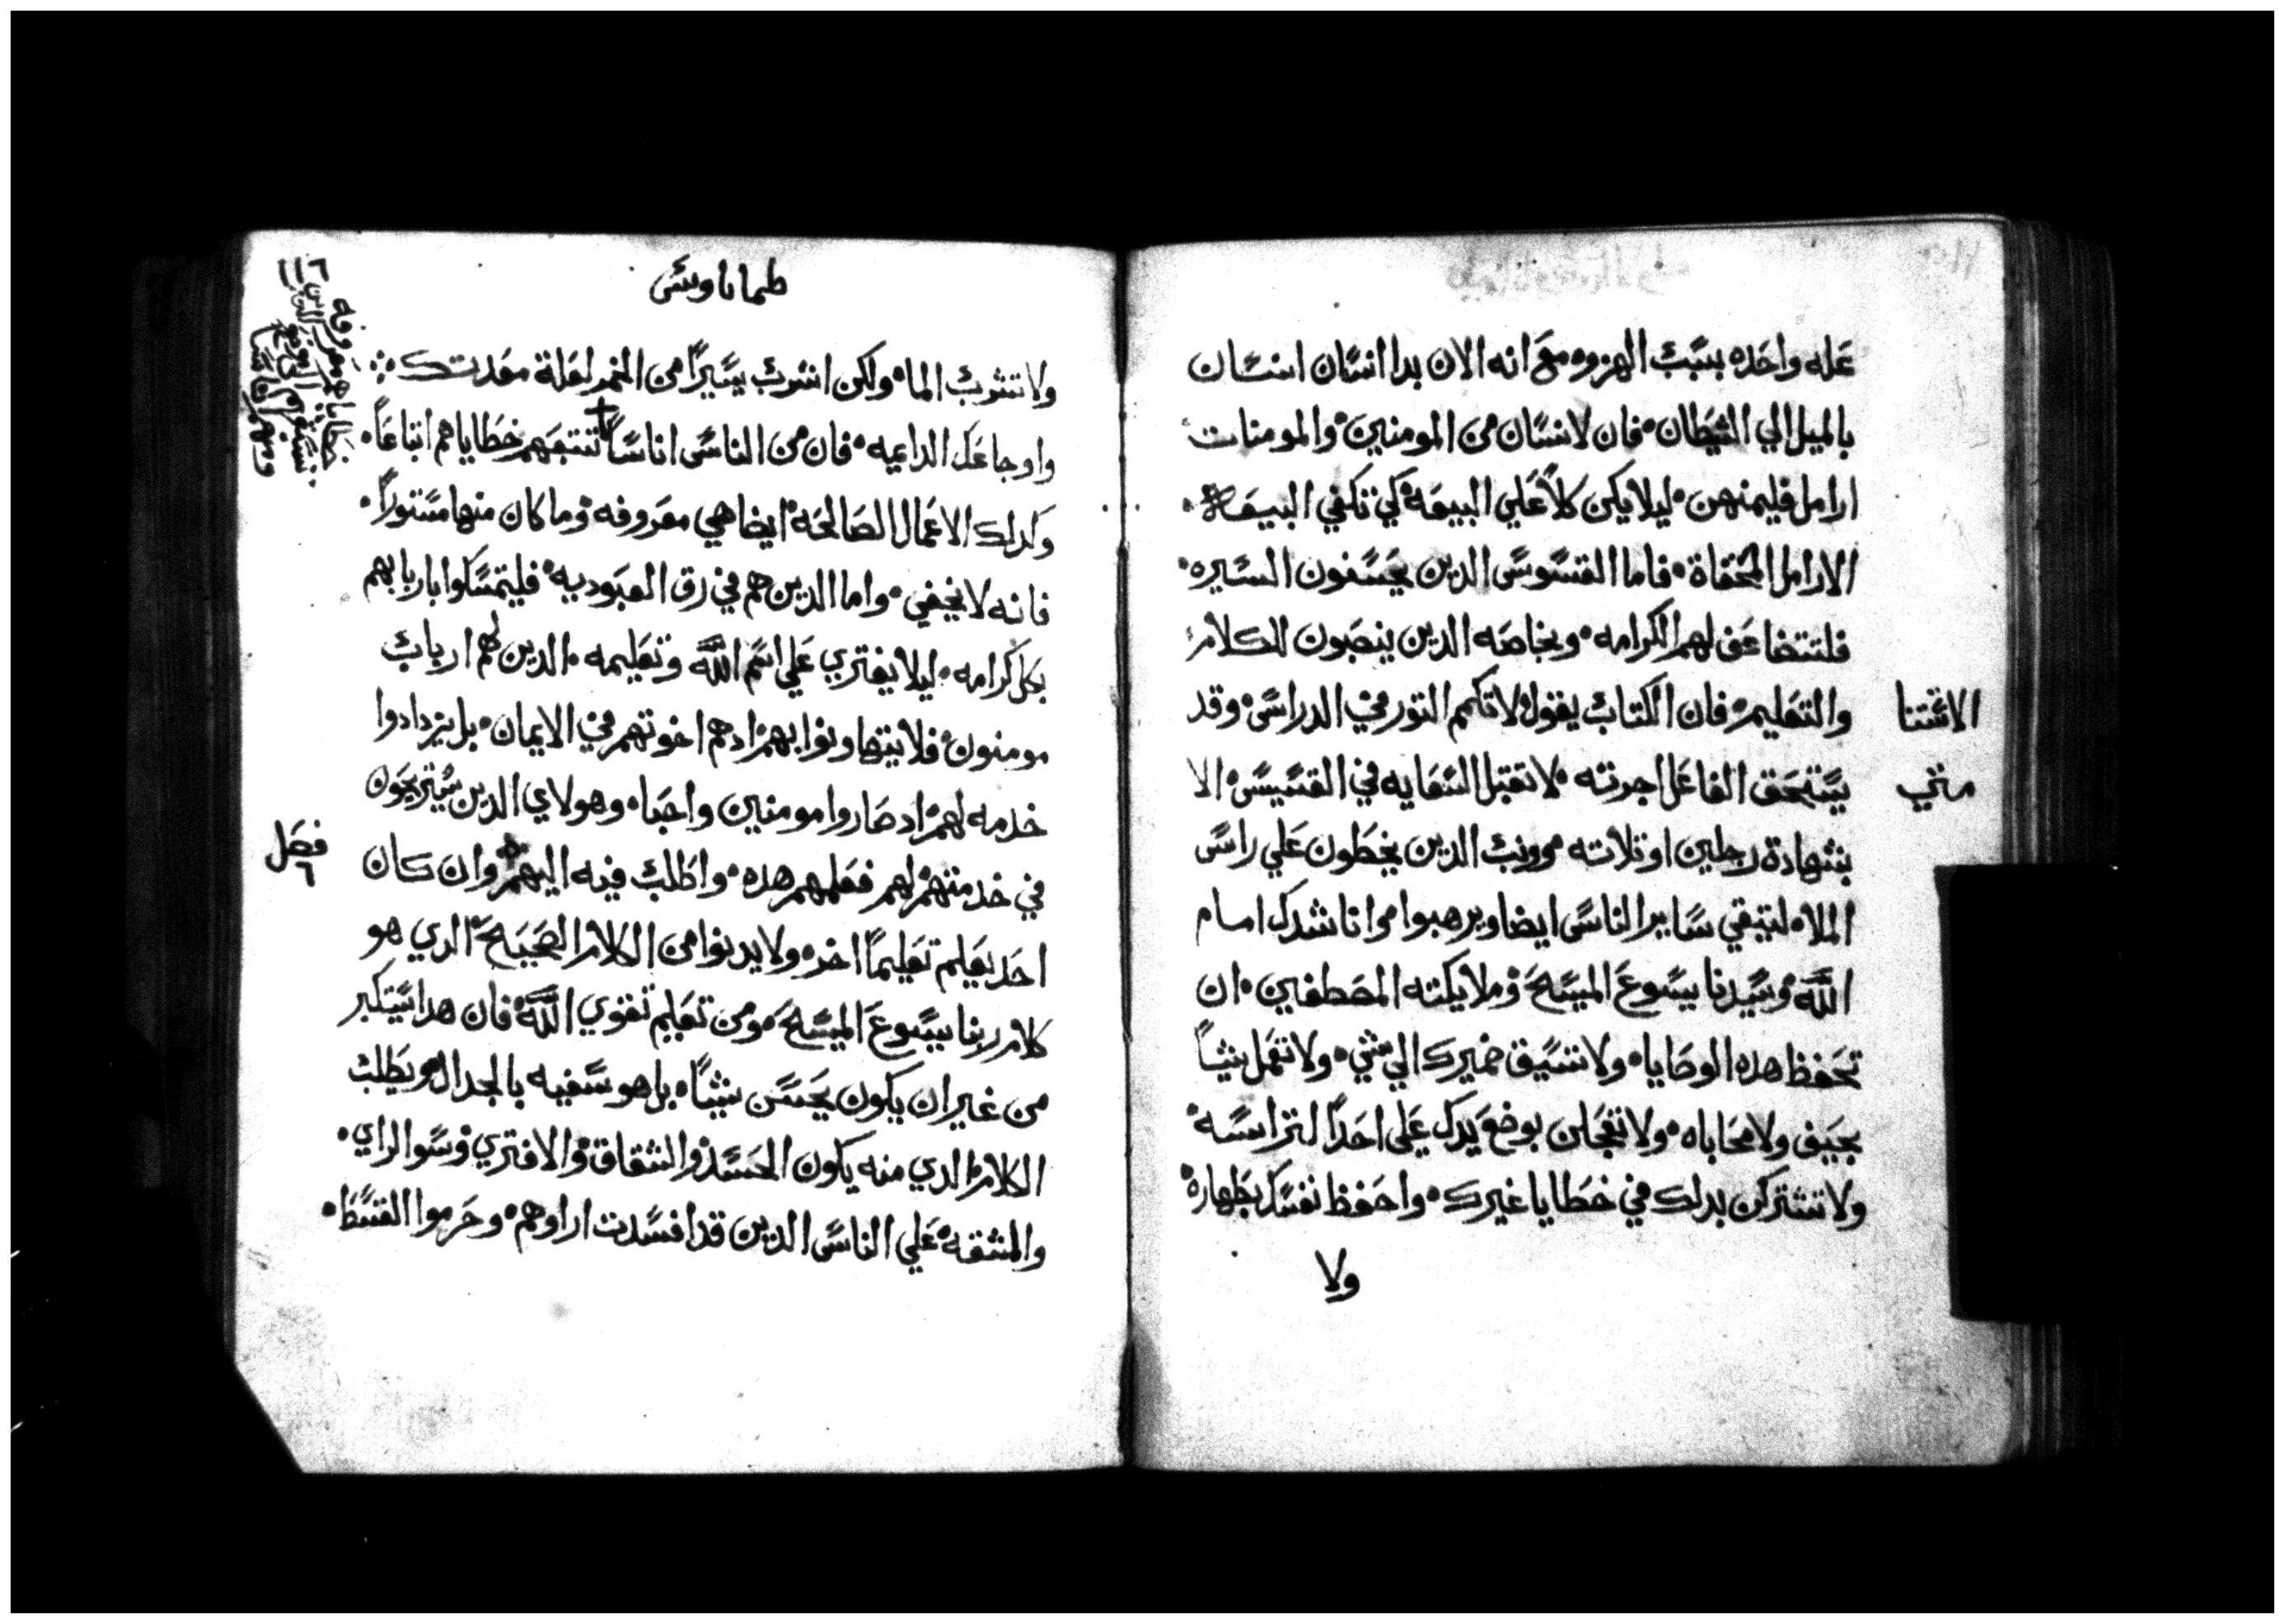 عله واحده بسبب الهزوه مع انه الان بدا انسان انسان
بالميل الي الشيطان فان لانسان من المومنين والمومنات
ارامل فليمنهن ليلا يكن كلاً علي البيعة كي تكفي البيعة
الارامل المحقاة فاما القسوس الدين يحسنون السيره
فلتتضاعف لهم الكرامه وبخاصه الدين ينصبون للكلام
والتعليم فان الكتاب يقول لا تكمم التور في الدراس وقد
الاتتنا
يستحق الفاعل اجرته لا تقبل السعايه في القسيس الا
متي
بشهادة رجلين او تلاته وونب الدين يخطون علي راس
الملاه لتبقي ساير الناس ايضا ويرهبوا وانا شدك امام
الله وسيدنا يسوع المسيح وملايكته المصطفين ان
تحفظ هده الوصايا ولا تسبق ضميرك الي شي ولا تعمل شياً
بحيف ولا محاباه ولا تعجلن بوضع يدك علي احداً لتراسه
ولا تشتركن بدلك في خطايا غيرك واحفظ نفسك بطهارة
ولا
١١٦
طماتاوس
ولا تشرب الما ولكن اشرب يسيراً من الخمر لعلة معدتك
واوجاعك الداعيه فان من الناس اناساً تتبعهم خطاياهم اتباعاً
وكدلك الاعمال الصالحة ايضا هي معروفه وما كان منها مستوراً
فانه لا يخفي واما الدين هم في رق العبوديه فليتمسكوا باربابهم
بكل كرامه ليلا يفتري علي اسم الله وتعليمه الدين لهم ارباب
مومنون فلا يتهاونوا بهم ادهم اخوتهم في الايمان بل يزدادوا
خدمه لهم اد صاروا مومنين واحبا وهولاي الدين يستريحون
في خدمتهم لهم فعلمهم هده واطلب فيه اليهم وان كان
فصل
٦
احد يعلم تعليماً اخر ولا يدنوا من الكلام الصحيح الدي هو
كلام ربنا يسوع المسيح ومن تعليم تقوي الله فان هدا يستكبر
من غير ان يكون يحسن شياً بل هو سفيه بالجدال ويطلب
الكلام الدي منه يكون الحسد والشقاق والافتري وسو الراي
والمشقه علي الناس الدين قد افسدت اراوهم وحرموا القسط